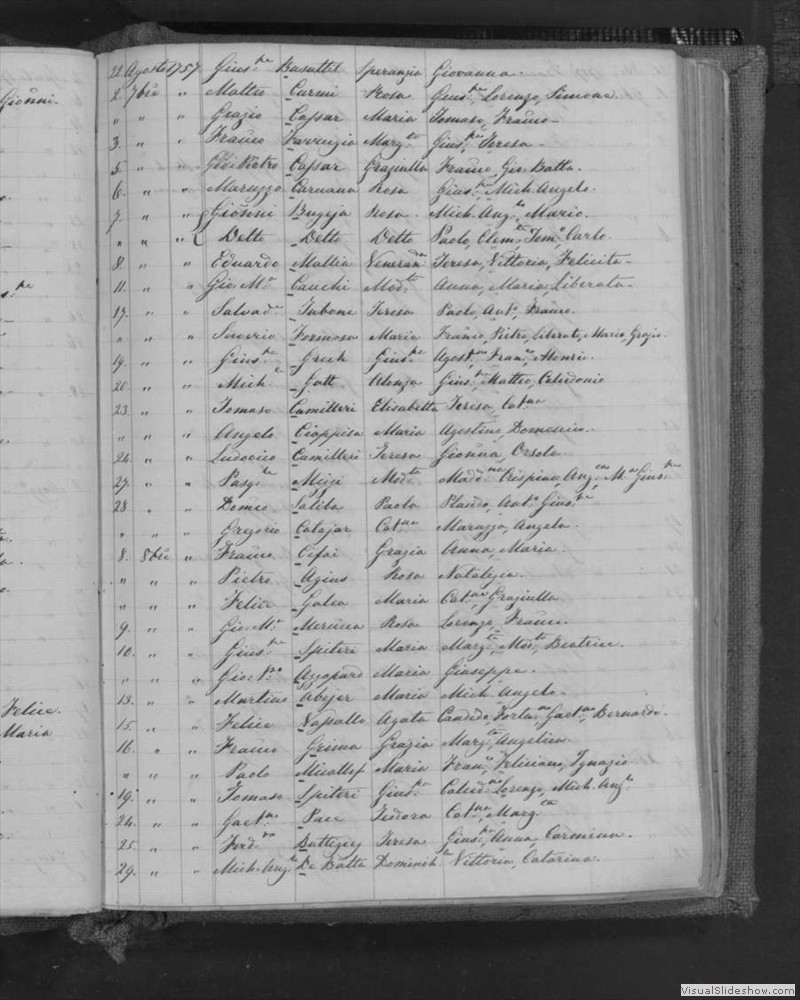 Gionni.
Felice.
Maria
22 Agosto 1757 Gius.pe Busuttil Speranza Giovanna.
2. 7bre " Matteo Curmi Rosa Gius.pe, Lorenzo, Simone
" " " Grazio Cassar Maria Tomaso, Franco.
3. " " Franco Farrugia Marg.ta Gius.pe, Teresa.
5. " " Gio: Pietro Cassar Graziulla Franco, Gio: Batta.
6. " " Maruzzo Caruana Rosa Gius.pe, Mich. Angelo.
7. " " Gionni Bugeja Rosa. Mich. Ang.lo, Mario.
" " " Detto Detto Detto Paolo, Clem.te, Tom.o, Carlo.
8. " " Eduardo Mallia Veneran.a Teresa, Vittoria, Felicita.
11. " " Gio: M.a Cauchi Mad.na Anna, Maria, Liberata.
17. " " Salvad.e Tabone Teresa Paolo, Ant.o, Franco.
" " " Saverio Formosa Maria Franco, Pietro, Liberata, Mario, Grazio.
19. " " Gius.pe Grech Gius.pa Agost.no, Fran.co,
20. " " Mich.e Gatt Gius.pe, Matteo, Celidonio
23. " " Tomaso Camilleri Elisabetta Teresa, Cat.na
" " " Angelo Ciappisa Maria Agostino, Domenico.
24. " " Ludovico Camilleri Teresa Gionna, Orsola.
27. " " Pasq.le Mizzi Mad.na Crispina, Ang.ca, M.a Gius.pa
28 " " Domco Saliba Paola Placido, Ant.o, Gius.pe
" " " Gregorio Catajar Cat.na Maruzza, Angela.
8. 8bre " Franco Cefai Grazia Anna, Maria.
" " " Pietro Agius Rosa Natalizia.
" " " Felice Galea Maria Cat.na, Graziulla
9. " " Gio: M.a Mercieca Rosa Lorenzo, Franco.
10. " " Gius.pe Spiteri Maria Marg.ta, Beatrice.
" " " Gio: Azzopard Maria Giuseppe.
13. " " Martino Abejer Maria Mich. Angelo.
15. " " Felice Vassallo Agata Candido, Fortu.to, Gaet.no, Bernardo.
16. " " Franco Grima Grazia Marg.ta, Angelica.
" " " Paolo Micallef Maria Fran.co, Feliciano, Ignazio
19. " " Tomaso Spiteri Gius.pa Lorenzo, Mich. Ang.lo
24. " " Gaet.no Pace Teodora Cat.na, Marg.ta
25. " " Ferd.no Buttigieg Teresa Gius.pe, Anna, Carmina.
29. " " Mich. Ang.lo De Batta Domenica Vittoria, Catarina.
VisualSlideshow.com